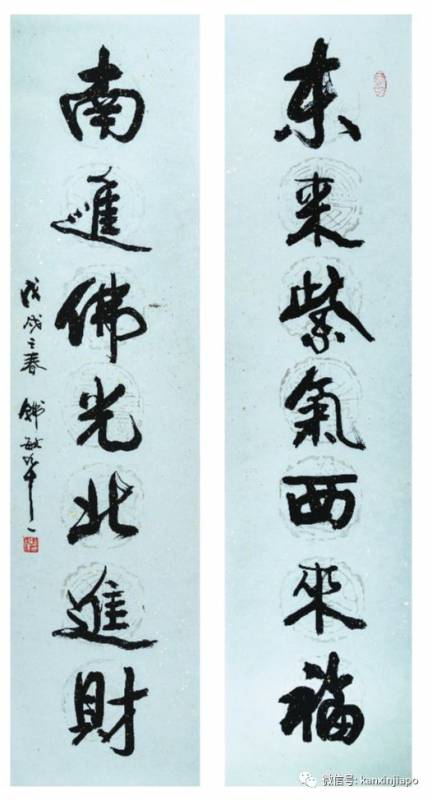 东来紫氣西來福
南進佛光北進財
戊戌之春
微信号: kanxinjiapo